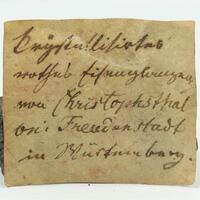 Krystallisirtes
rothes Eisenglanzerz
von Christophsthal
bei Freudenstadt
in Würtemberg.